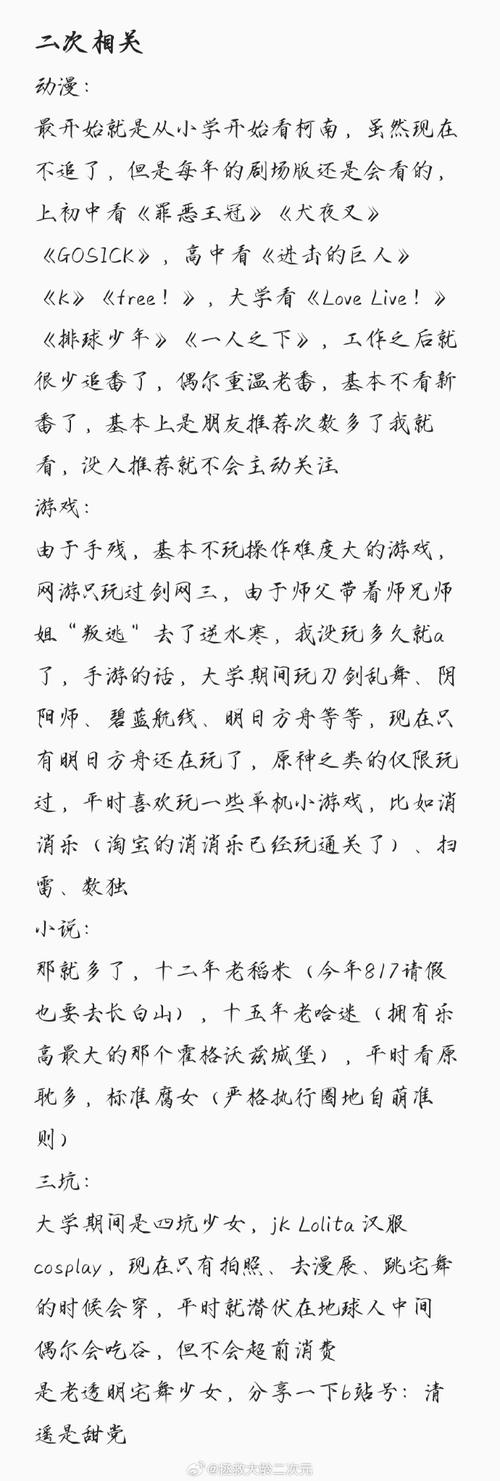 二次相关
动漫：
最开始就是从小学开始看柯南，虽然现在
不追了，但是每年的剧场版还是会看的，
上初中看《罪恶王冠》《犬夜叉》
《GOSICK》，高中看《进击的巨人》
《K》《free！》，大学看《Love Live！》
《排球少年》《一人之下》，工作之后就
很少追番了，偶尔重温老番，基本不看新
番了，基本上是朋友推荐次数多了我就
看，没人推荐就不会主动关注
游戏：
由于手残，基本不玩操作难度大的游戏，
网游只玩过剑网三，由于师父带着师兄师
姐“叛逃”去了逆水寒，我没玩多久就a
了，手游的话，大学期间玩刀剑乱舞、阴
阳师、碧蓝航线、明日方舟等等，现在只
有明日方舟还在玩了，原神之类的仅限玩
过，平时喜欢玩一些单机小游戏，比如消
消乐（淘宝的消消乐已经玩通关了）、扫
雷、数独
小说：
那就多了，十二年老稻米（今年817请假
也要去长白山），十五年老哈迷（拥有乐
高最大的那个霍格沃兹城堡），平时看原
耽多，标准腐女（严格执行圈地自萌准
则）
三坑：
大学期间是四坑少女，jk Lolita 汉服
cosplay，现在只有拍照、去漫展、跳宅舞
的时候会穿，平时就潜伏在地球人中间
偶尔会吃谷，但不会超前消费
是老透明宅舞少女，分享一下b站号：清
遥是甜党
@拯救大龄二次元